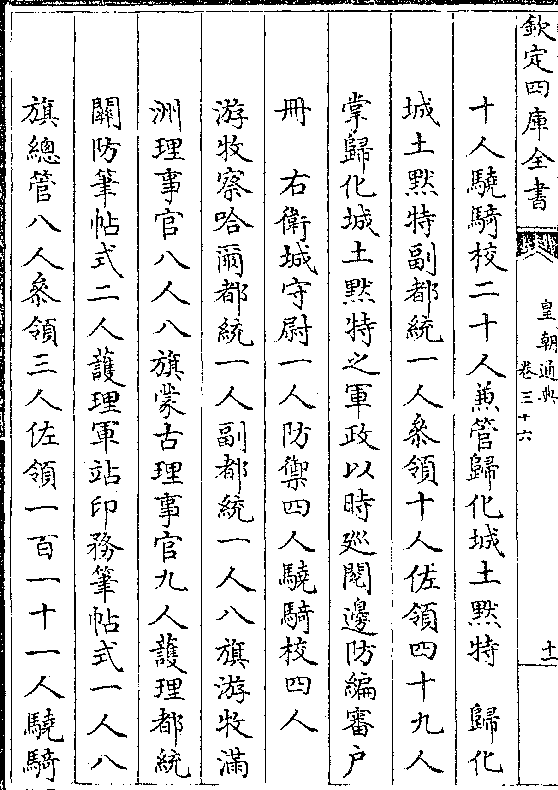 欽定四庫全書
皇朝通典
卷三十六
十一
十人驍騎校二十人兼管歸化城土默特　歸化
城土默特副都統一人叅領十人佐領四十九人
掌歸化城土默特之軍政以時廵閱邊防編審户
冊　右衛城守尉一人防禦四人驍騎校四人
游牧察哈爾都統一人副都統一人八旗游牧滿
洲理事官八人八旗蒙古理事官九人護理都統
關防筆帖式二人護理軍站印務筆帖式一人八
旗總管八人叅領三人佐領一百一十一人驍騎